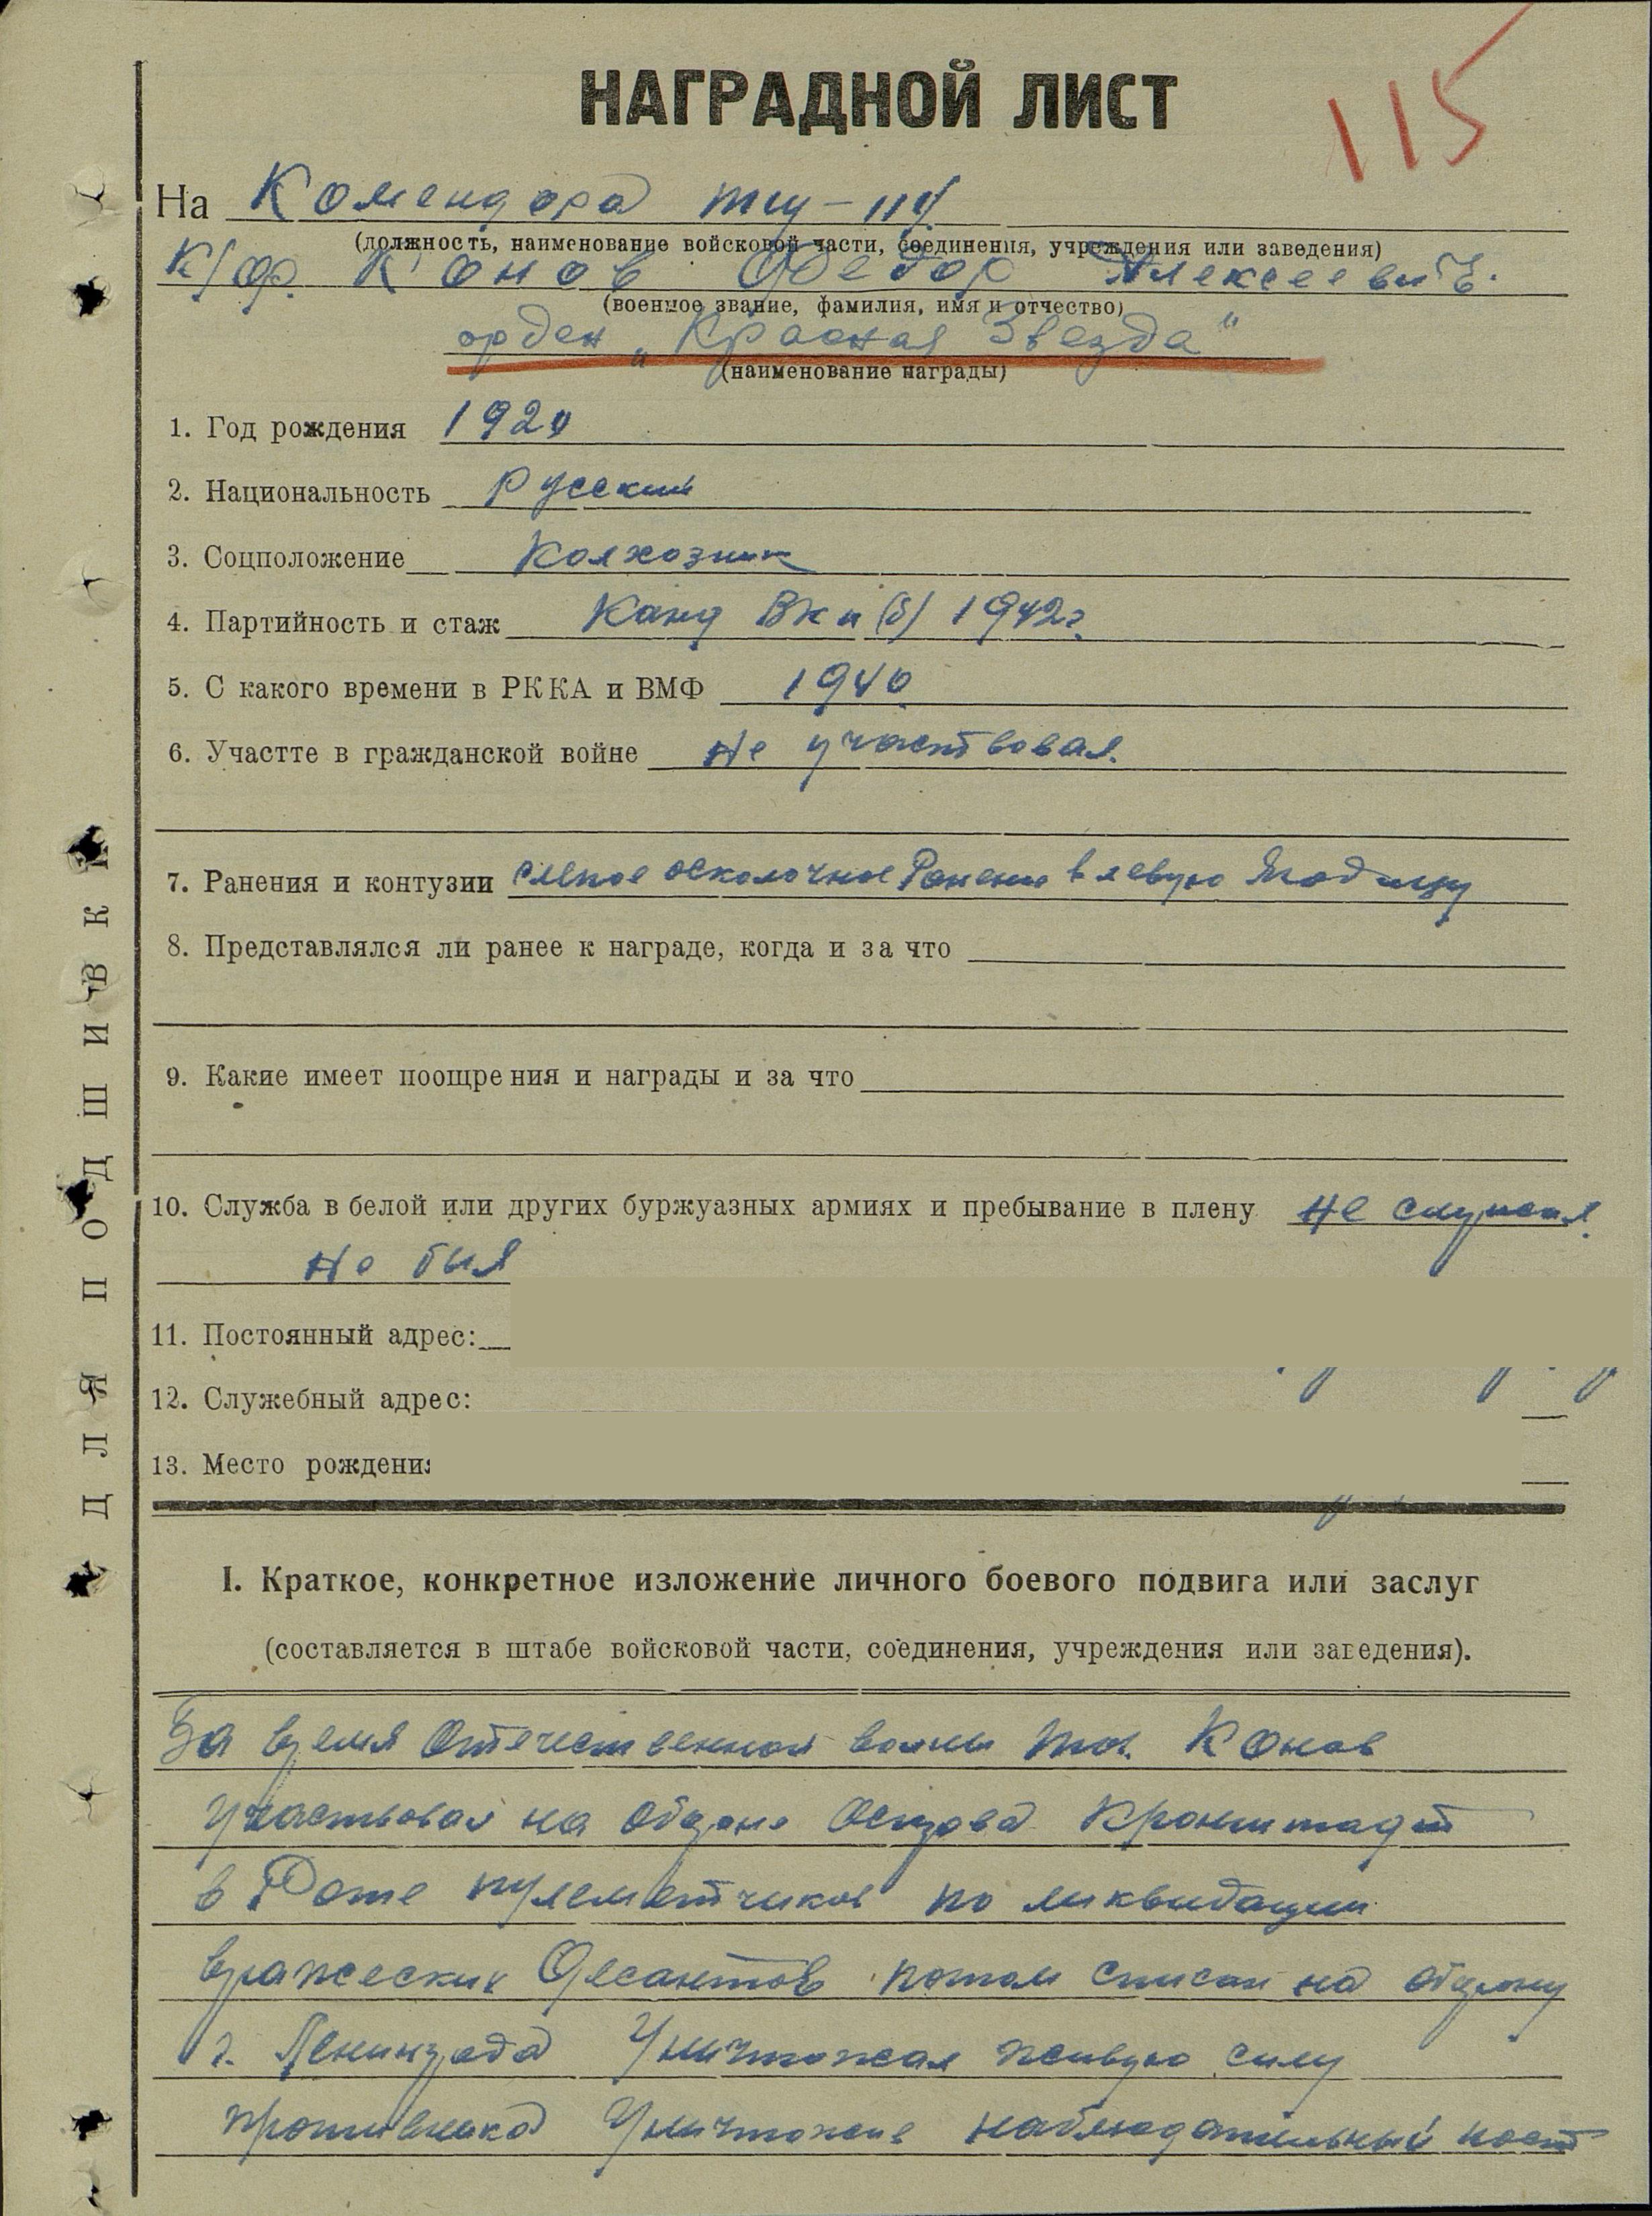 НАГРАДНОЙ ЛИСТ
115
На Комендора тщ-114
(должность, наименование войсковой части, соединения, учреждения или заведения)
к/ф. Конов Федор Алексеевич.
(военное звание, фамилия, имя и отчество)
орден „Красная Звезда“
(наименование награды)
1. Год рождения 1920
2. Национальность Русский
3. Соцположение Колхозник
4. Партийность и стаж Канд ВКп(б) 1942г.
5. С какого времени в РККА и ВМФ 1940
6. Участте в гражданской войне Не участвовал.
7. Ранения и контузии слепое осколочное Ранение в левую Ягодицу
8. Представлялся ли ранее к награде, когда и за что
9. Какие имеет поощрения и награды и за что
10. Служба в белой или других буржуазных армиях и пребывание в плену Не служил.
Не был
11. Постоянный адрес:
12. Служебный адрес:
13. Место рождени
I. Краткое, конкретное изложение личного боевого подвига или заслуг
(составляется в штабе войсковой части, соединения, учреждения или заведения).
За время Отечественной войны тов. Конов
участвовал на обороне Острова Кронштадт
в Роте пулеметчиков по ликвидации
вражеских Десантов потом списан на оборону
г. Ленинграда Уничтожал живую силу
противника Уничтожив наблюдательный пост
ДЛЯ ПОДШИВКИ